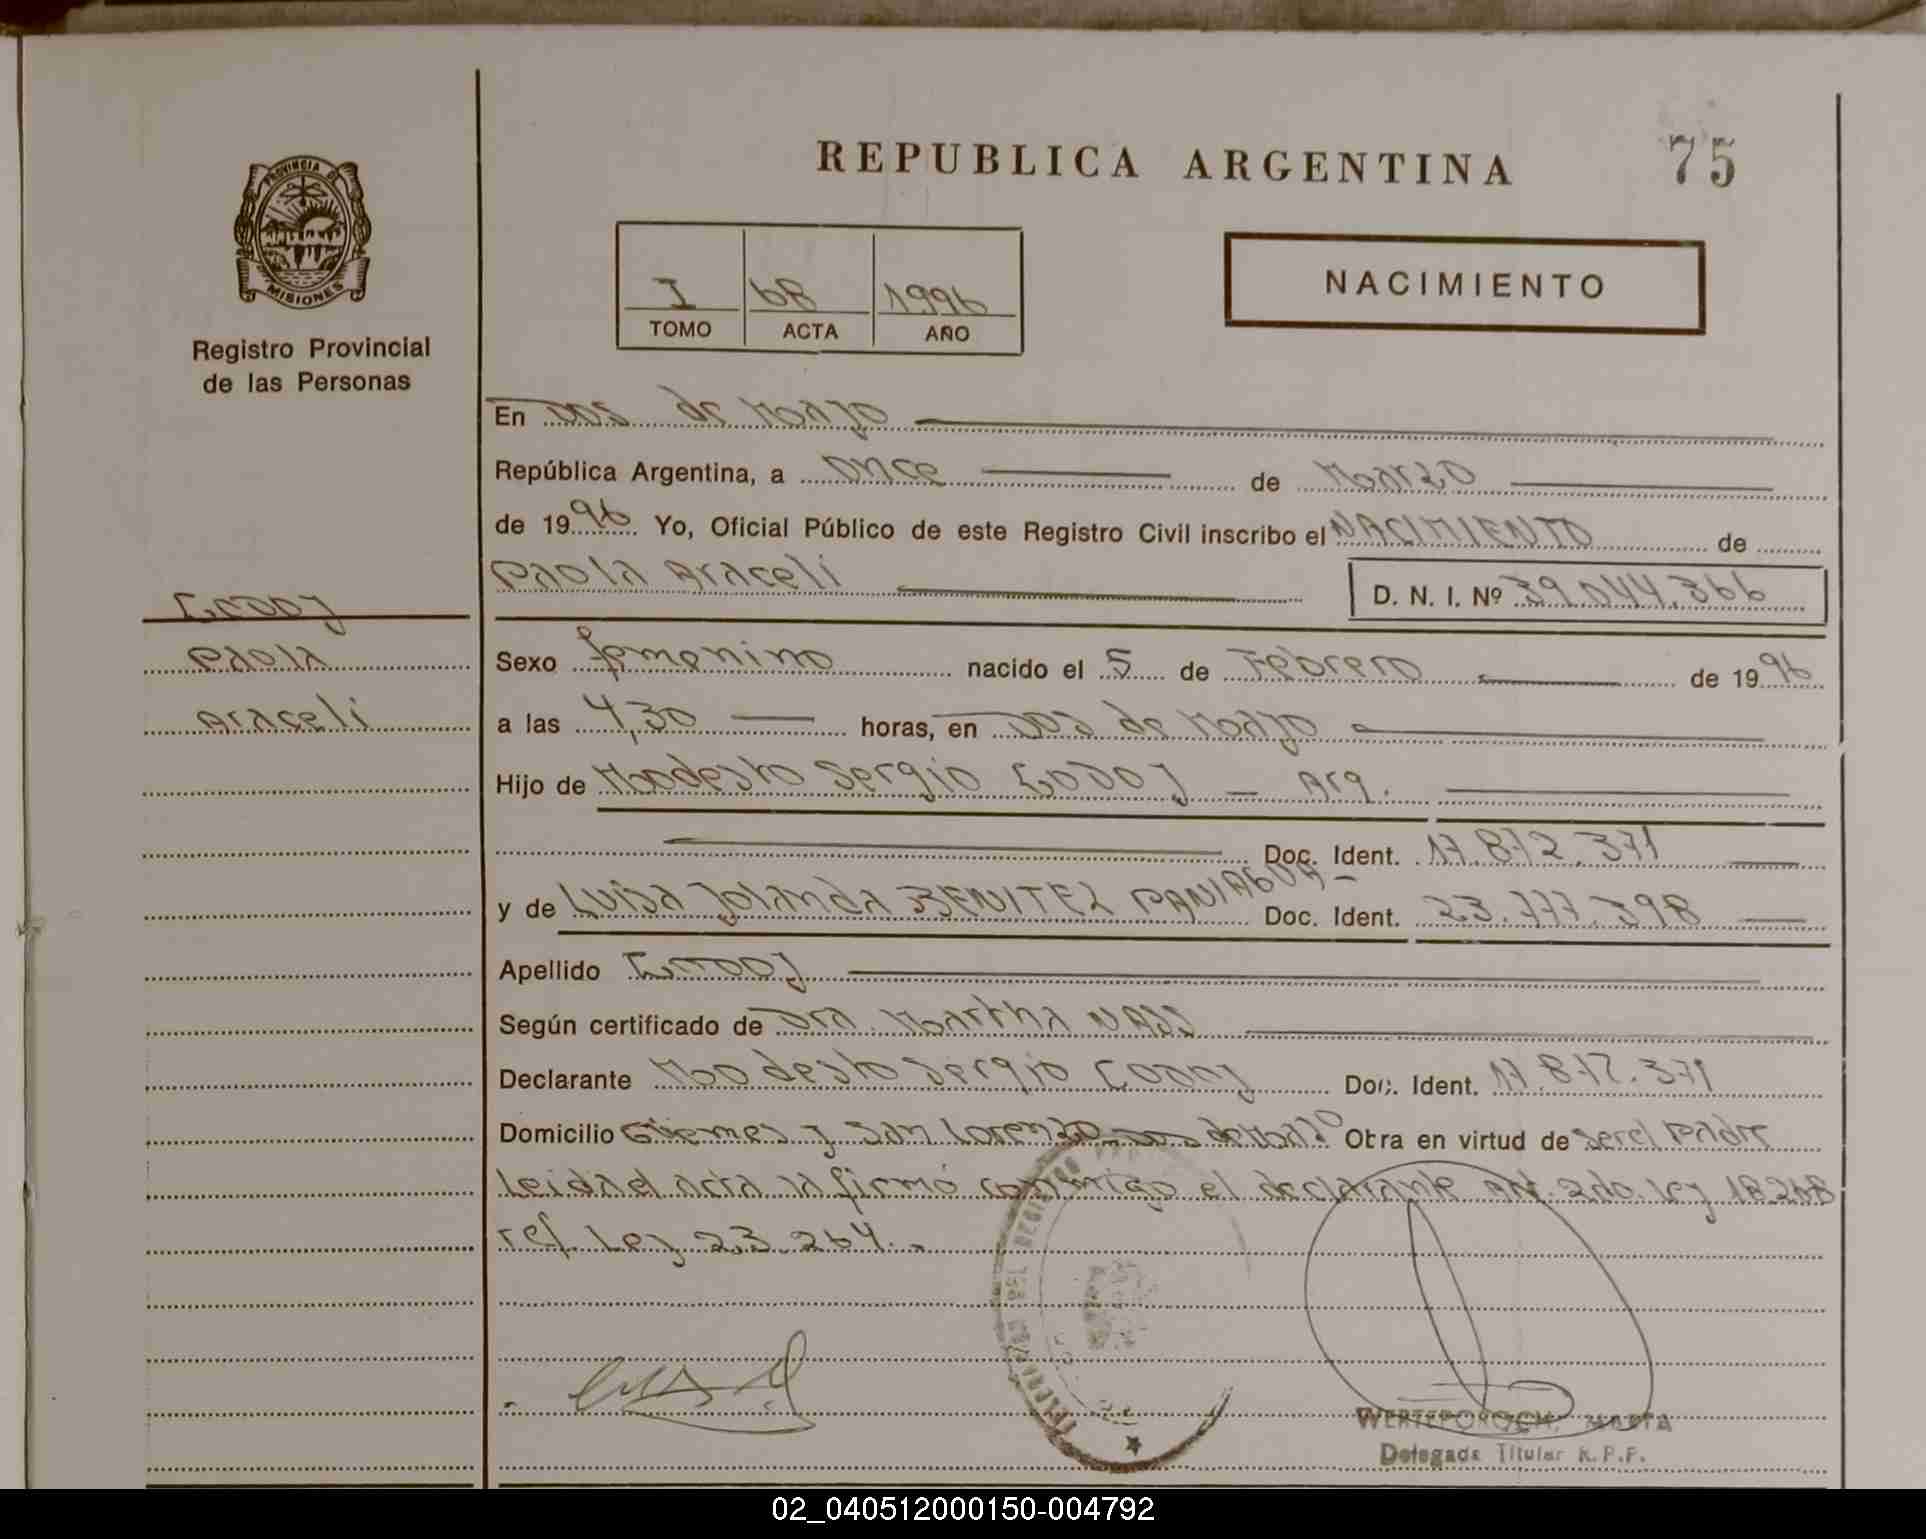 REPUBLICA ARGENTINA
75
PROVINCIA DE
MISIONES
Registro Provincial
de las Personas
I 68 1996
TOMO ACTA AÑO
NACIMIENTO
En Dos de Mayo
República Argentina, a once de Marzo
de 1996 Yo, Oficial Público de este Registro Civil inscribo el NACIMIENTO de
Paola Araceli D. N. I. Nº 39.044.366
Godoy
Paola
Araceli
Sexo femenino nacido el 5 de Febrero de 1996
a las 4,30 horas, en Dos de Mayo
Hijo de Modesto Sergio GODOY – Arg.
Doc. Ident. 17.872.371
y de Luisa Yolanda BENITEZ PANIAGUA – Doc. Ident. 23.777.398
Apellido GODOY
Según certificado de Dra. Martha NASS
Declarante Modesto Sergio Godoy Doc. Ident. 17.872.371
Domicilio Güemes y San Lorenzo Dos de Mayo Otra en virtud de ser el Padre
Leida el acta la firmó conmigo el declarante Art. 2do. Ley 18248
ref. Ley 23.264.-
DEL REGISTRO
WERTEPOROCH, MARTA
Delegada Titular R.P.P.
02_040512000150-004792